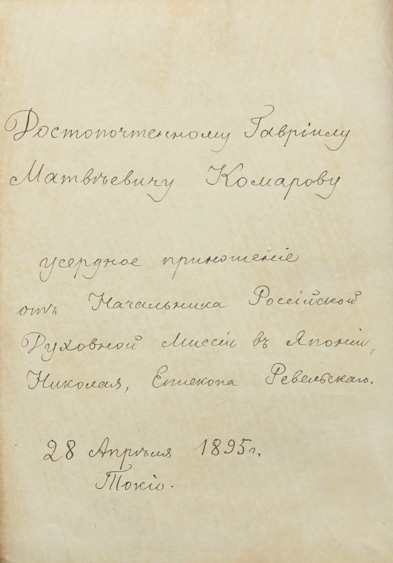 Достопочтенному Гавріилу
Матвѣевичу Комарову
усердное приношеніе
отъ Начальника Россійской
Духовной Миссіи въ Японіи,
Николая, Епископа Ревельскаго.
28 Апрѣля 1895 г.
Токіо.